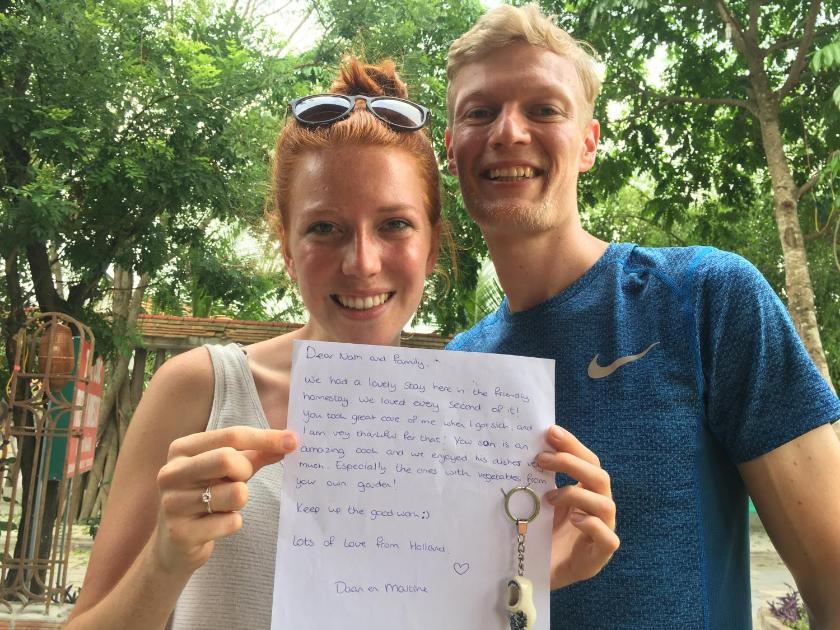 Dear Nam and family,
We had a lovely stay here in the friendly
homestay. We loved every second of it!
You took great care of me when I got sick, and
I am very thankful for that! Your son is an
amazing cook and we enjoyed his dishes very
much. Especially the ones with vegetables from
your own garden!
Keep up the good work :)
Lots of Love from Holland.
Daan en